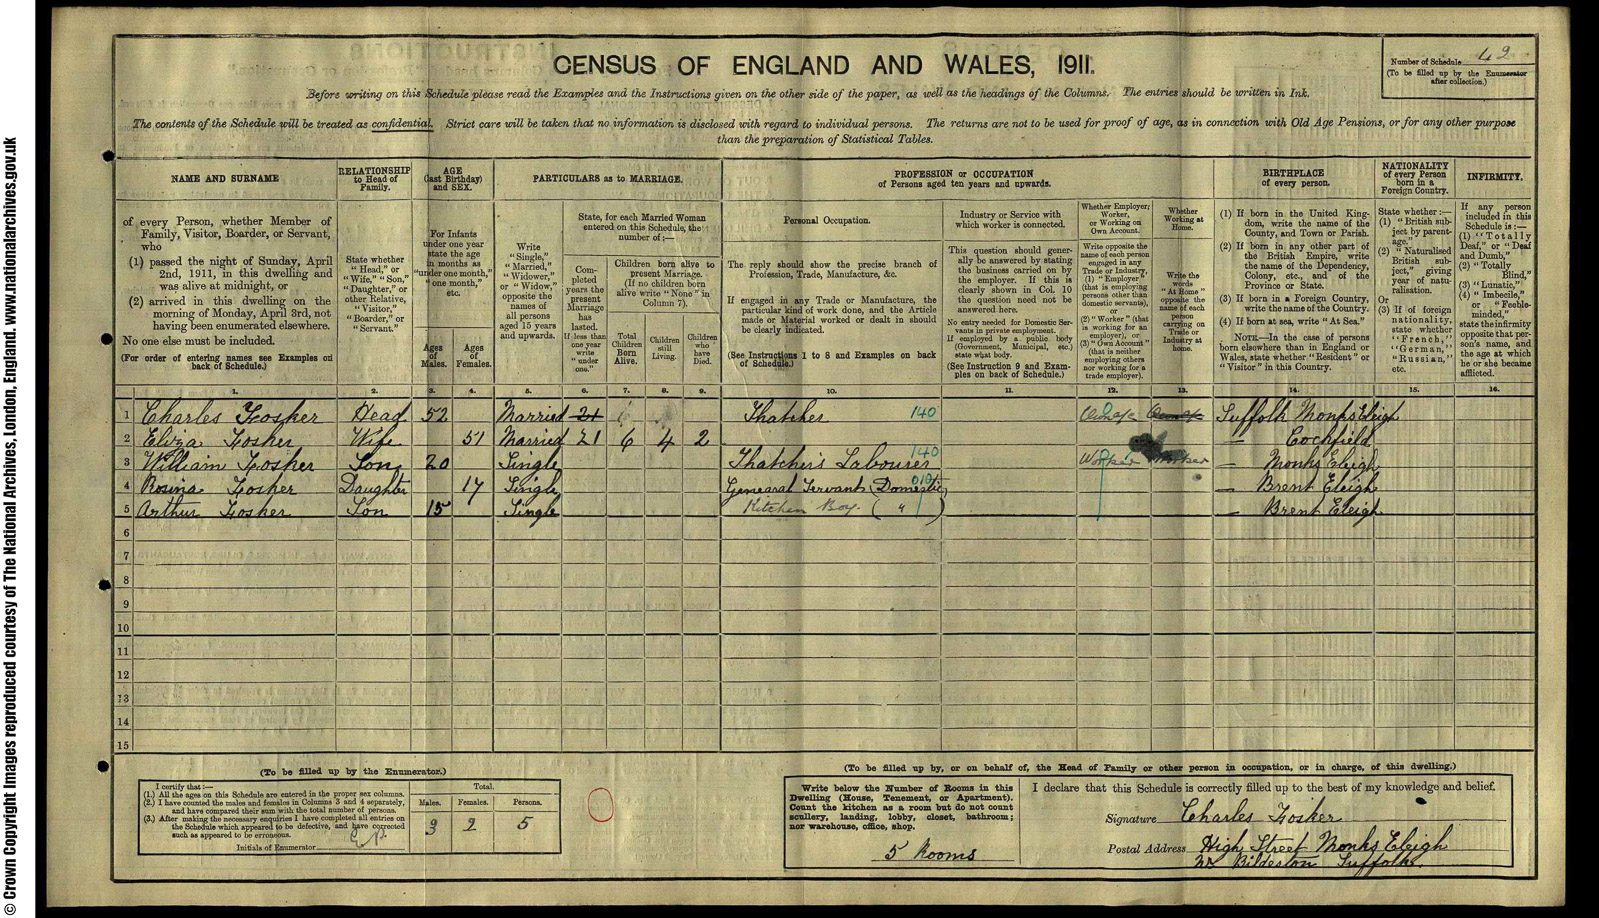 © Crown Copyright Images reproduced courtesy of The National Archives, London, England. www.nationalarchives.gov.uk
CENSUS OF ENGLAND AND WALES, 1911.
Number of Schedule 42
(To be filled up by the Enumerator
after collection.)
Before writing on this Schedule please read the Examples and the Instructions given on the other side of the paper, as well as the headings of the Columns. The entries should be written in Ink.
The contents of the Schedule will be treated as confidential. Strict care will be taken that no information is disclosed with regard to individual persons. The returns are not to be used for proof of age, as in connection with Old Age Pensions, or for any other purpose
than the preparation of Statistical Tables.
NAME AND SURNAME
of every Person, whether Member of
Family, Visitor, Boarder, or Servant,
who
(1) passed the night of Sunday, April
2nd, 1911, in this dwelling and
was alive at midnight, or
(2) arrived in this dwelling on the
morning of Monday, April 3rd, not
having been enumerated elsewhere.
No one else must be included.
(For order of entering names see Examples on
back of Schedule.)
RELATIONSHIP
to Head of
Family.
State whether
"Head," or
"Wife," "Son,"
"Daughter," or
other Relative,
"Visitor,"
"Boarder," or
"Servant."
AGE
(last Birthday)
and SEX.
For Infants
under one year
state the age
in months as
"under one month,"
"one month,"
etc.
Ages
of
Males.
Ages
of
Females.
PARTICULARS as to MARRIAGE.
Write
"Single,"
"Married,"
"Widower,"
or "Widow,"
opposite the
names of
all persons
aged 15 years
and upwards.
State, for each Married Woman
entered on this Schedule, the
number of:—
Com-
pleted
years the
present
Marriage
has
lasted.
If less
than
one year
write
"under
one."
Children born alive to
present Marriage.
(If no children born
alive write "None" in
Column 7).
Total
Children
Born
Alive.
Children
still
Living.
Children
who
have
Died.
PROFESSION or OCCUPATION
of Persons aged ten years and upwards.
Personal Occupation.
The reply should show the precise branch of
Profession, Trade, Manufacture, &c.
If engaged in any Trade or Manufacture, the
particular kind of work done, and the Article
made or Material worked or dealt in should
be clearly indicated.
(See Instructions 1 to 8 and Examples on back
of Schedule.)
Industry or Service with
which worker is connected.
This question should gener-
ally be answered by stating
the business carried on by
the employer. If this is
clearly shown in Col. 10
the question need not be
answered here.
No entry needed for Domestic Ser-
vants in private employment.
If employed by a public body
(Government, Municipal, etc.)
state what body.
(See Instruction 9 and Exam-
ples on back of Schedule.)
Whether Employer,
Worker,
or Working on
Own Account.
Write opposite the
name of each person
engaged in any
Trade or Industry,
(1) "Employer"
(that is employing
persons other than
domestic servants),
or
(2) "Worker" (that
is working for an
employer), or
(3) "Own Account"
(that is neither
employing others
nor working for a
trade employer).
Whether
Working at
Home.
Write the
words
"At Home"
opposite the
name of each
person
carrying on
Trade or
Industry at
home.
BIRTHPLACE
of every person.
(1) If born in the United King-
dom, write the name of the
County, and Town or Parish.
(2) If born in any other part of
the British Empire, write
the name of the Dependency,
Colony, etc., and of the
Province or State.
(3) If born in a Foreign Country,
write the name of the Country.
(4) If born at sea, write "At Sea."
NOTE.—In the case of persons
born elsewhere than in England or
Wales, state whether "Resident" or
"Visitor" in this Country.
NATIONALITY
of every Person
born in a
Foreign Country.
State whether:—
(1) "British sub-
ject by parent-
age."
(2) "Naturalised
British sub-
ject," giving
year of natu-
ralisation.
Or
(3) If of foreign
nationality,
state whether
"French,"
"German,"
"Russian,"
etc.
INFIRMITY.
If any person
included in this
Schedule is:—
(1) "Totally
Deaf," or "Deaf
and Dumb,"
(2) "Totally
Blind,"
(3) "Lunatic,"
(4) "Imbecile,"
or "Feeble-
minded,"
state the infirmity
opposite that per-
son's name, and
the age at which
he or she became
afflicted.
1. 2. 3. 4. 5. 6. 7. 8. 9. 10. 11. 12. 13. 14. 15. 16.
1 Charles Fosher Head 52 Married 21 Thatcher 140 Suffolk Monks Eleigh
2 Eliza Fosher Wife 51 Married 21 6 4 2 — Cockfield
3 William Fosher Son 20 Single Thatcher's Labourer 140 Worker Worker — Monks Eleigh
4 Rosina Fosher Daughter 17 Single General Servant (Domestic) — Brent Eleigh
5 Arthur Fosher Son 15 Single Kitchen Boy ( " ) — Brent Eleigh
6
7
8
9
10
11
12
13
14
15
(To be filled up by the Enumerator.)
I certify that:—
(1.) All the ages on this Schedule are entered in the proper sex columns.
(2.) I have counted the males and females in Columns 3 and 4 separately,
and have compared their sum with the total number of persons.
(3.) After making the necessary enquiries I have completed all entries on
the Schedule which appeared to be defective, and have corrected
such as appeared to be erroneous.
Initials of Enumerator
Total.
Males. Females. Persons.
3 2 5
(To be filled up by, or on behalf of, the Head of Family or other person in occupation, or in charge, of this dwelling.)
Write below the Number of Rooms in this
Dwelling (House, Tenement, or Apartment).
Count the kitchen as a room but do not count
scullery, landing, lobby, closet, bathroom;
nor warehouse, office, shop.
5 Rooms
I declare that this Schedule is correctly filled up to the best of my knowledge and belief.
Signature Charles Fosher
Postal Address High Street Monks Eleigh
Nr Bildeston Suffolk